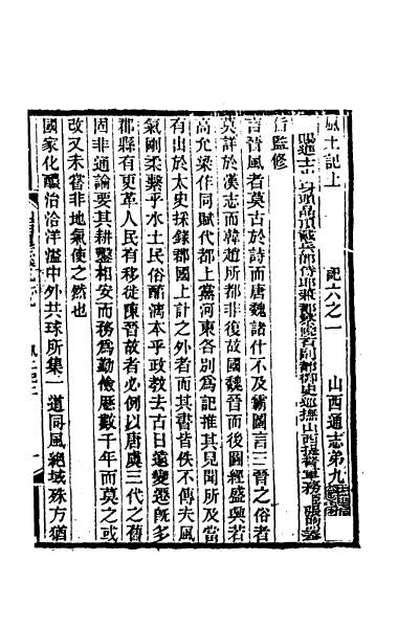 風土記上　記六之一　山西通志第九
監修
言晉風者莫古於詩而唐魏諸什不及霸圖言三晉之俗者
莫詳於漢志而韓趙所都非復故國魏晉而後圖經盛興若
高允梁作同賦代都上黨河東各別為記推其見聞所及當
有出於太史採錄郡國上計之外者而其書皆佚不傳夫風
氣剛柔繫乎水土民俗醕漓本乎政教去古日遠變遷旣多
郡縣有更革人民有移徙陳晉故者必例以唐虞三代之舊
固非通論要其耕鑿相安而務爲勤儉歷數千年而莫之或
改又未嘗非地氣使之然也
國家化醲洽洽洋溢中外共球所集一道同風絕域殊方猶